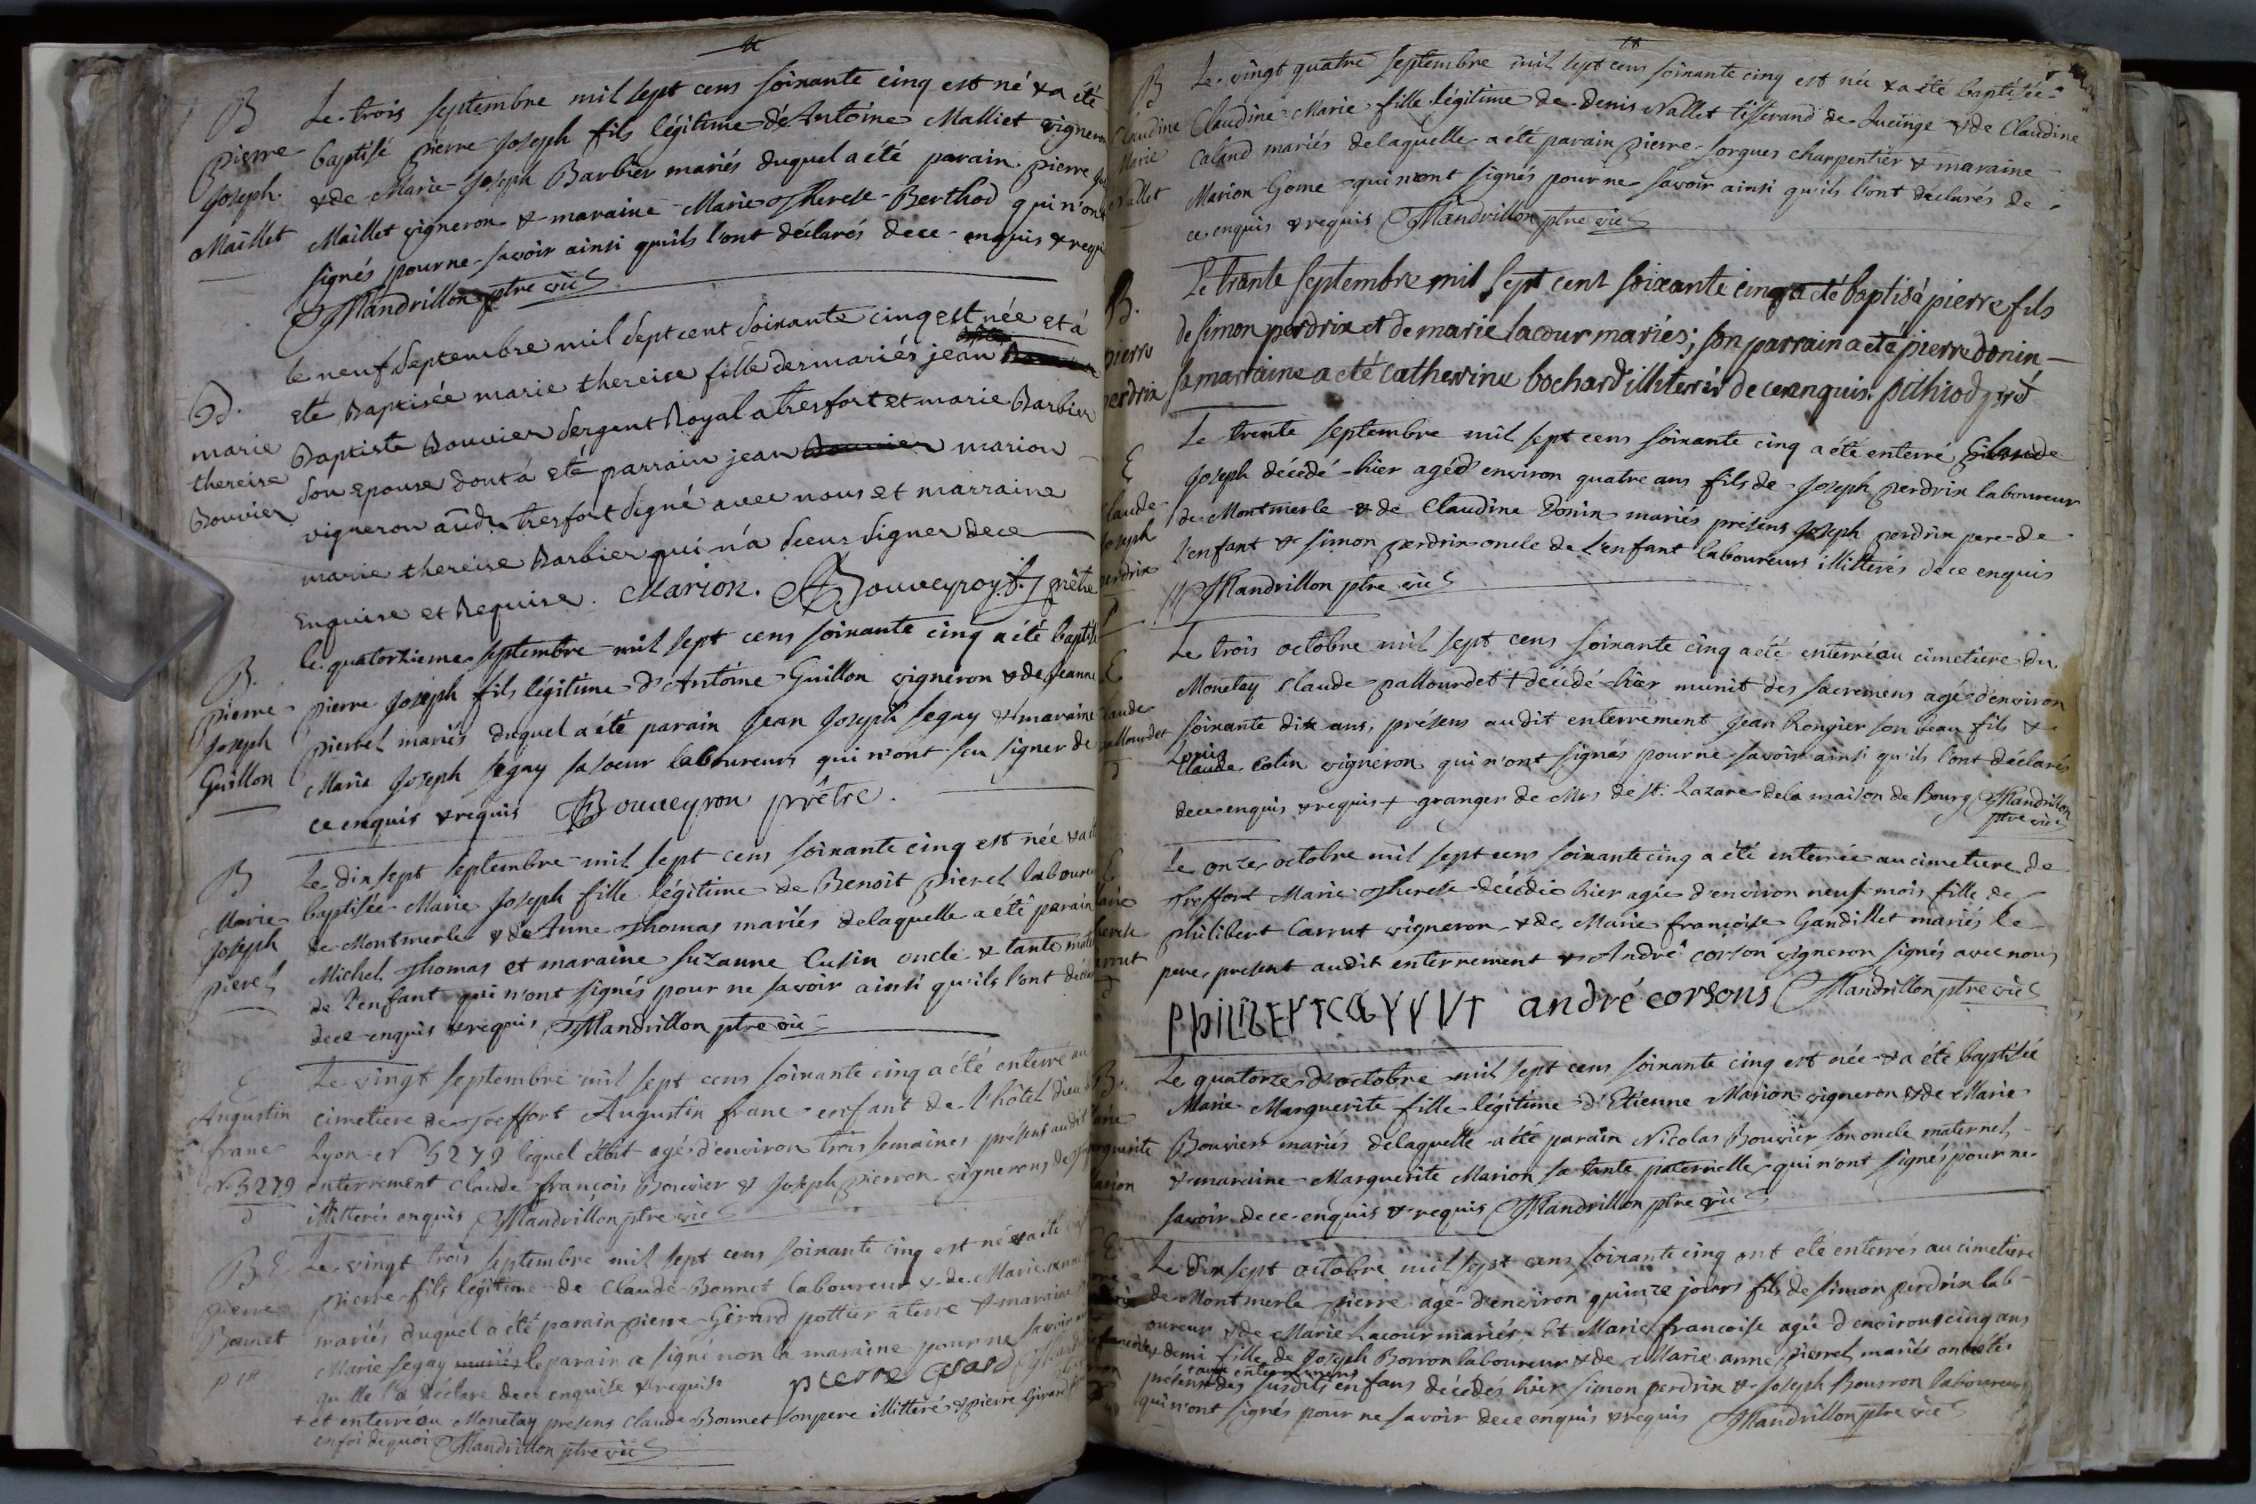 B
Pierre
Joseph
Maillet
Le trois septembre mil sept cens soixante cinq est né & a été
baptisé pierre Joseph fils légitime d'Antoine Malliet vigneron
& de Marie Joseph Barbier mariés duquel a été parain pierre
Maillet vigneron & maraine Marie Therese Berthod qui n'ont
signés pour ne savoir ainsi qu'ils l'ont déclarés de ce enquis & requis
Mandrillon ptre vic
B.
marie
thereise
Bouvier
le neuf septembre mil sept cent soixante cinq est née et à
eté Baptisée marie thereise fille des mariés jean
Baptiste Bouvier sergent Royal a tresfort et marie Barbier
son epouse dont à eté parrain jean Bouvier marion
vigneron aud. tresfort signé avec nous et marraine
marie thereise Barbier qui n'à sceus signer de ce
Enquise et Requise. Marion. Bouveyroy prêtre
B.
pierre
Joseph
Guillon
le quatorzieme septembre mil sept cens soixante cinq a été baptisé
pierre Joseph fils légitime d'Antoine Guillon vigneron & de Jeanne
pierrel mariés duquel a été parain Jean Joseph segay & maraine
Marie Joseph segay sa soeur laboureurs qui n'ont seu signer de
ce enquis & requis Bouveyron prêtre.
B
Marie
Joseph
pierel
Le dix sept septembre mil sept cens soixante cinq est née & a été
baptisée Marie Joseph fille légitime de Benoit pierel laboureur
de Montmerle & de Anne Thomas mariés delaquelle a été parain
Michel Thomas et maraine Suzanne Cusin oncle & tante
de l'enfant qui n'ont signés pour ne savoir ainsi qu'ils l'ont
de ce enquis & requis Mandrillon ptre vic
E
Augustin
franc
N. 5279
d
Le vingt septembre mil sept cens soixante cinq a été enterré au
cimetiere de Treffort Augustin franc enfant de l'hôtel dieu
Lyon N 5279 lequel étoit agé d'environ trois semaines présens audit
enterrement Claude françois Bouvier & Joseph pierron vignerons de
illitterés enquis Mandrillon ptre vic
B E
pierre
Bonnet
Le vingt trois septembre mil sept cens soixante cinq est né & a été
pierre fils légitime de Claude Bonnet laboureur & de Marie
mariés duquel a été parain pierre Girard pottier a terre & maraine
Marie segay mariés le parain a signé non la maraine pour ne savoir
qu'elle l'a déclaré de ce enquise & requise pierre
+ et enterré au Monetay presens Claude Bonnet son pere illitteré & pierre Girard
en foi de quoi Mandrillon ptre vic
B
Claudine
Marie
Nallet
Le vingt quatre septembre mil sept cens soixante cinq est née & a été baptisée
Claudine Marie fille légitime de denis Nallet tisserand de Lucinge & de Claudine
Caland mariés delaquelle a été parain pierre sorgues charpentier & maraine
Marion Gome qui n'ont signés pour ne savoir ainsi qu'ils l'ont déclarés de
ce enquis & requis Mandrillon ptre vic
B.
pierre
perdrix
Le trente septembre mil sept cent soixante cinq a été baptisé pierre fils
de simon perdrix et de marie lacour mariés; son parrain a été pierre donin
sa marraine a été catherine bochard illiterés de ce enquis. pithiod
E
Claude
Joseph
perdrix
Le trente septembre mil sept cens soixante cinq a été enterré Claude
Joseph décédé hier agé d'environ quatre ans fils de Joseph perdrix laboureur
de Montmerle & de Claudine Donin mariés présens Joseph perdrix pere de
l'enfant & simon perdrix oncle de l'enfant laboureurs illitterés de ce enquis
Mandrillon ptre vic
E
Claude
pallourdet
Le trois octobre mil sept cens soixante cinq a été enterré au cimetiere du
Monetay Claude pallourdet + décédé hier munit des sacremens agé d'environ
soixante dix ans, présens audit enterrement Jean Rongier son beau fils &
Louis
Claude Colin vigneron qui n'ont signés pour ne savoir ainsi qu'ils l'ont déclarés
de ce enquis & requis + granger de Mrs de st. Lazare de la maison de Bourg Mandrillon
ptre vic
E
Le onze octobre mil sept cens soixante cinq a été enterrée au cimetiere de
Treffort Marie Therese décédée hier agée d'environ neuf mois fille de
philibert Carrut vigneron & de Marie françoise Gandillet mariés le
pere present audit enterrement & André corson vigneron signés avec nous
andré corsons Mandrillon ptre vic
B.
Le quatorze d'octobre mil sept cens soixante cinq est née & a été baptisée
Marie Marguerite fille légitime d'Etienne Marion vigneron & de Marie
Bouvier mariés delaquelle a été parain Nicolas Bouvier son oncle maternel
& maraine Marguerite Marion sa tante paternelle qui n'ont signés pour ne
savoir de ce enquis & requis Mandrillon ptre vic
E
Le dix sept octobre mil sept cens soixante cinq ont été enterrés au cimetiere
de Montmerle pierre agé d'environ quinze jours fils de simon perdrix lab-
oureur & de Marie Lacour mariés, Et Marie francoise agée d'environ cinq ans
& demi fille de Joseph Borron laboureur & de Marie anne pierrel mariés ont étés
présens aux enterremens
des susdits enfans décédés hier simon perdrix & Joseph Bourron laboureurs
qui n'ont signés pour ne savoir de ce enquis & requis Mandrillon ptre vic